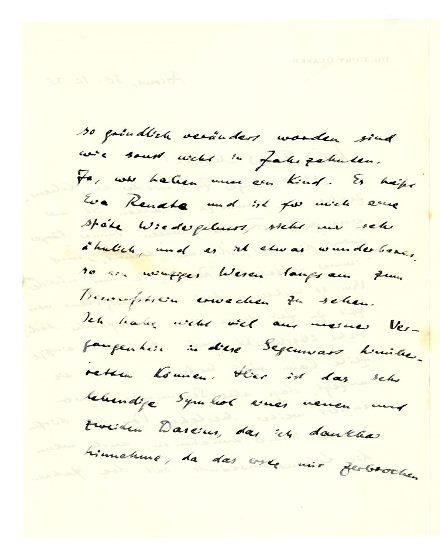 so gründlich verändert worden sind
wie sonst nicht in Jahrzehnten.
Ja, wir haben nun ein Kind. Es heißt
Eva Renate und ist für mich eine
späte Wiedergeburt, sieht mir sehr
ähnlich, und es ist etwas wunderbares,
so ein winziges Wesen langsam zum
Bewußtsein erwachen zu sehen.
Ich habe nicht viel aus meiner Ver-
gangenheit in diese Gegenwart hinüber-
retten können. Hier ist das sehr
lebendige Symbol eines neuen und
zweiten Daseins, das ich dankbar
hinnehme, da das erste mir zerbrochen